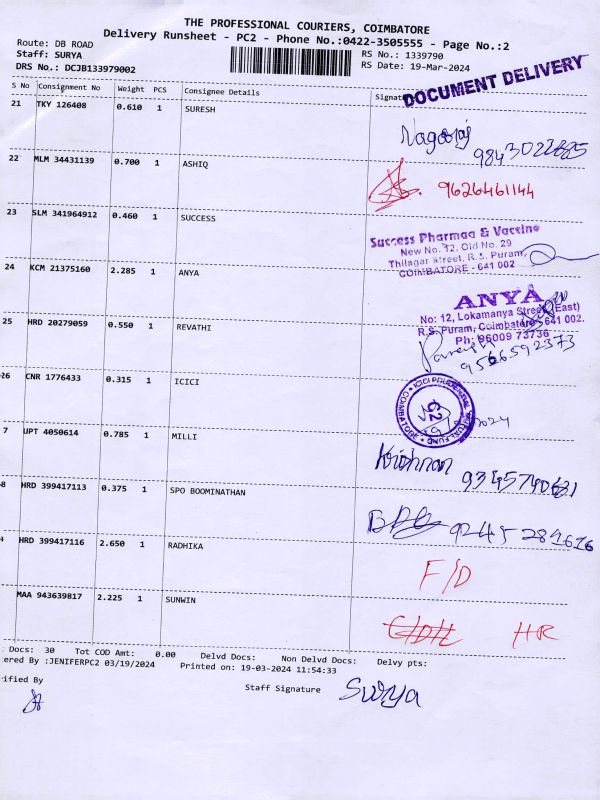 THE PROFESSIONAL COURIERS, COIMBATORE
Delivery Runsheet - PC2 - Phone No.:0422-3505555 - Page No.:2
Route: DB ROAD
Staff: SURYA
DRS No.: DCJB133979002
RS No.: 1339790
RS Date: 19-Mar-2024
DOCUMENT DELIVERY
S No Consignment No Weight PCS Consignee Details Signat
21 TKY 126408 0.610 1 SURESH
Nagaraj
22 MLM 34431139 0.700 1 ASHIQ
9626461144
23 SLM 341964912 0.460 1 SUCCESS
Success Pharmaa & Vaccine
New No. 12, Old No. 29
Thilagar Street, R.S. Puram,
COIMBATORE - 641 002
24 KCM 21375160 2.285 1 ANYA
ANYA
No: 12, Lokamanya Street (East)
R.S. Puram, Coimbatore - 641 002.
Ph: 96009 73736
25 HRD 20279059 0.550 1 REVATHI
9566592373
26 CNR 1776433 0.315 1 ICICI
ICICI PRUDENTIAL MUTUAL FUND
COIMBATORE
C2
7 UPT 4050614 0.785 1 MILLI
Krishnan
8 HRD 399417113 0.375 1 SPO BOOMINATHAN
HRD 399417116 2.650 1 RADHIKA
F/D
MAA 943639817 2.225 1 SUNWIN
HR
Docs: 30 Tot COD Amt: 0.00 Delvd Docs: Non Delvd Docs: Delvy pts:
ered By :JENIFERPC2 03/19/2024 Printed on: 19-03-2024 11:54:33
ified By
Staff Signature Surya